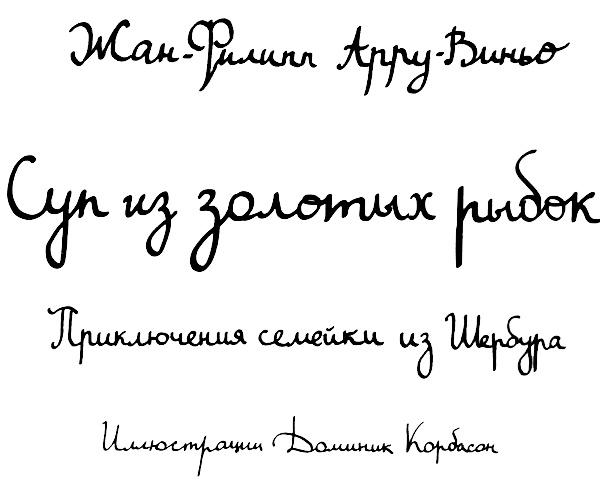 Жан-Филипп Арру-Виньо
Суп из золотых рыбок
Приключения семейки из Шербура
Иллюстрации Доминик Корбасон